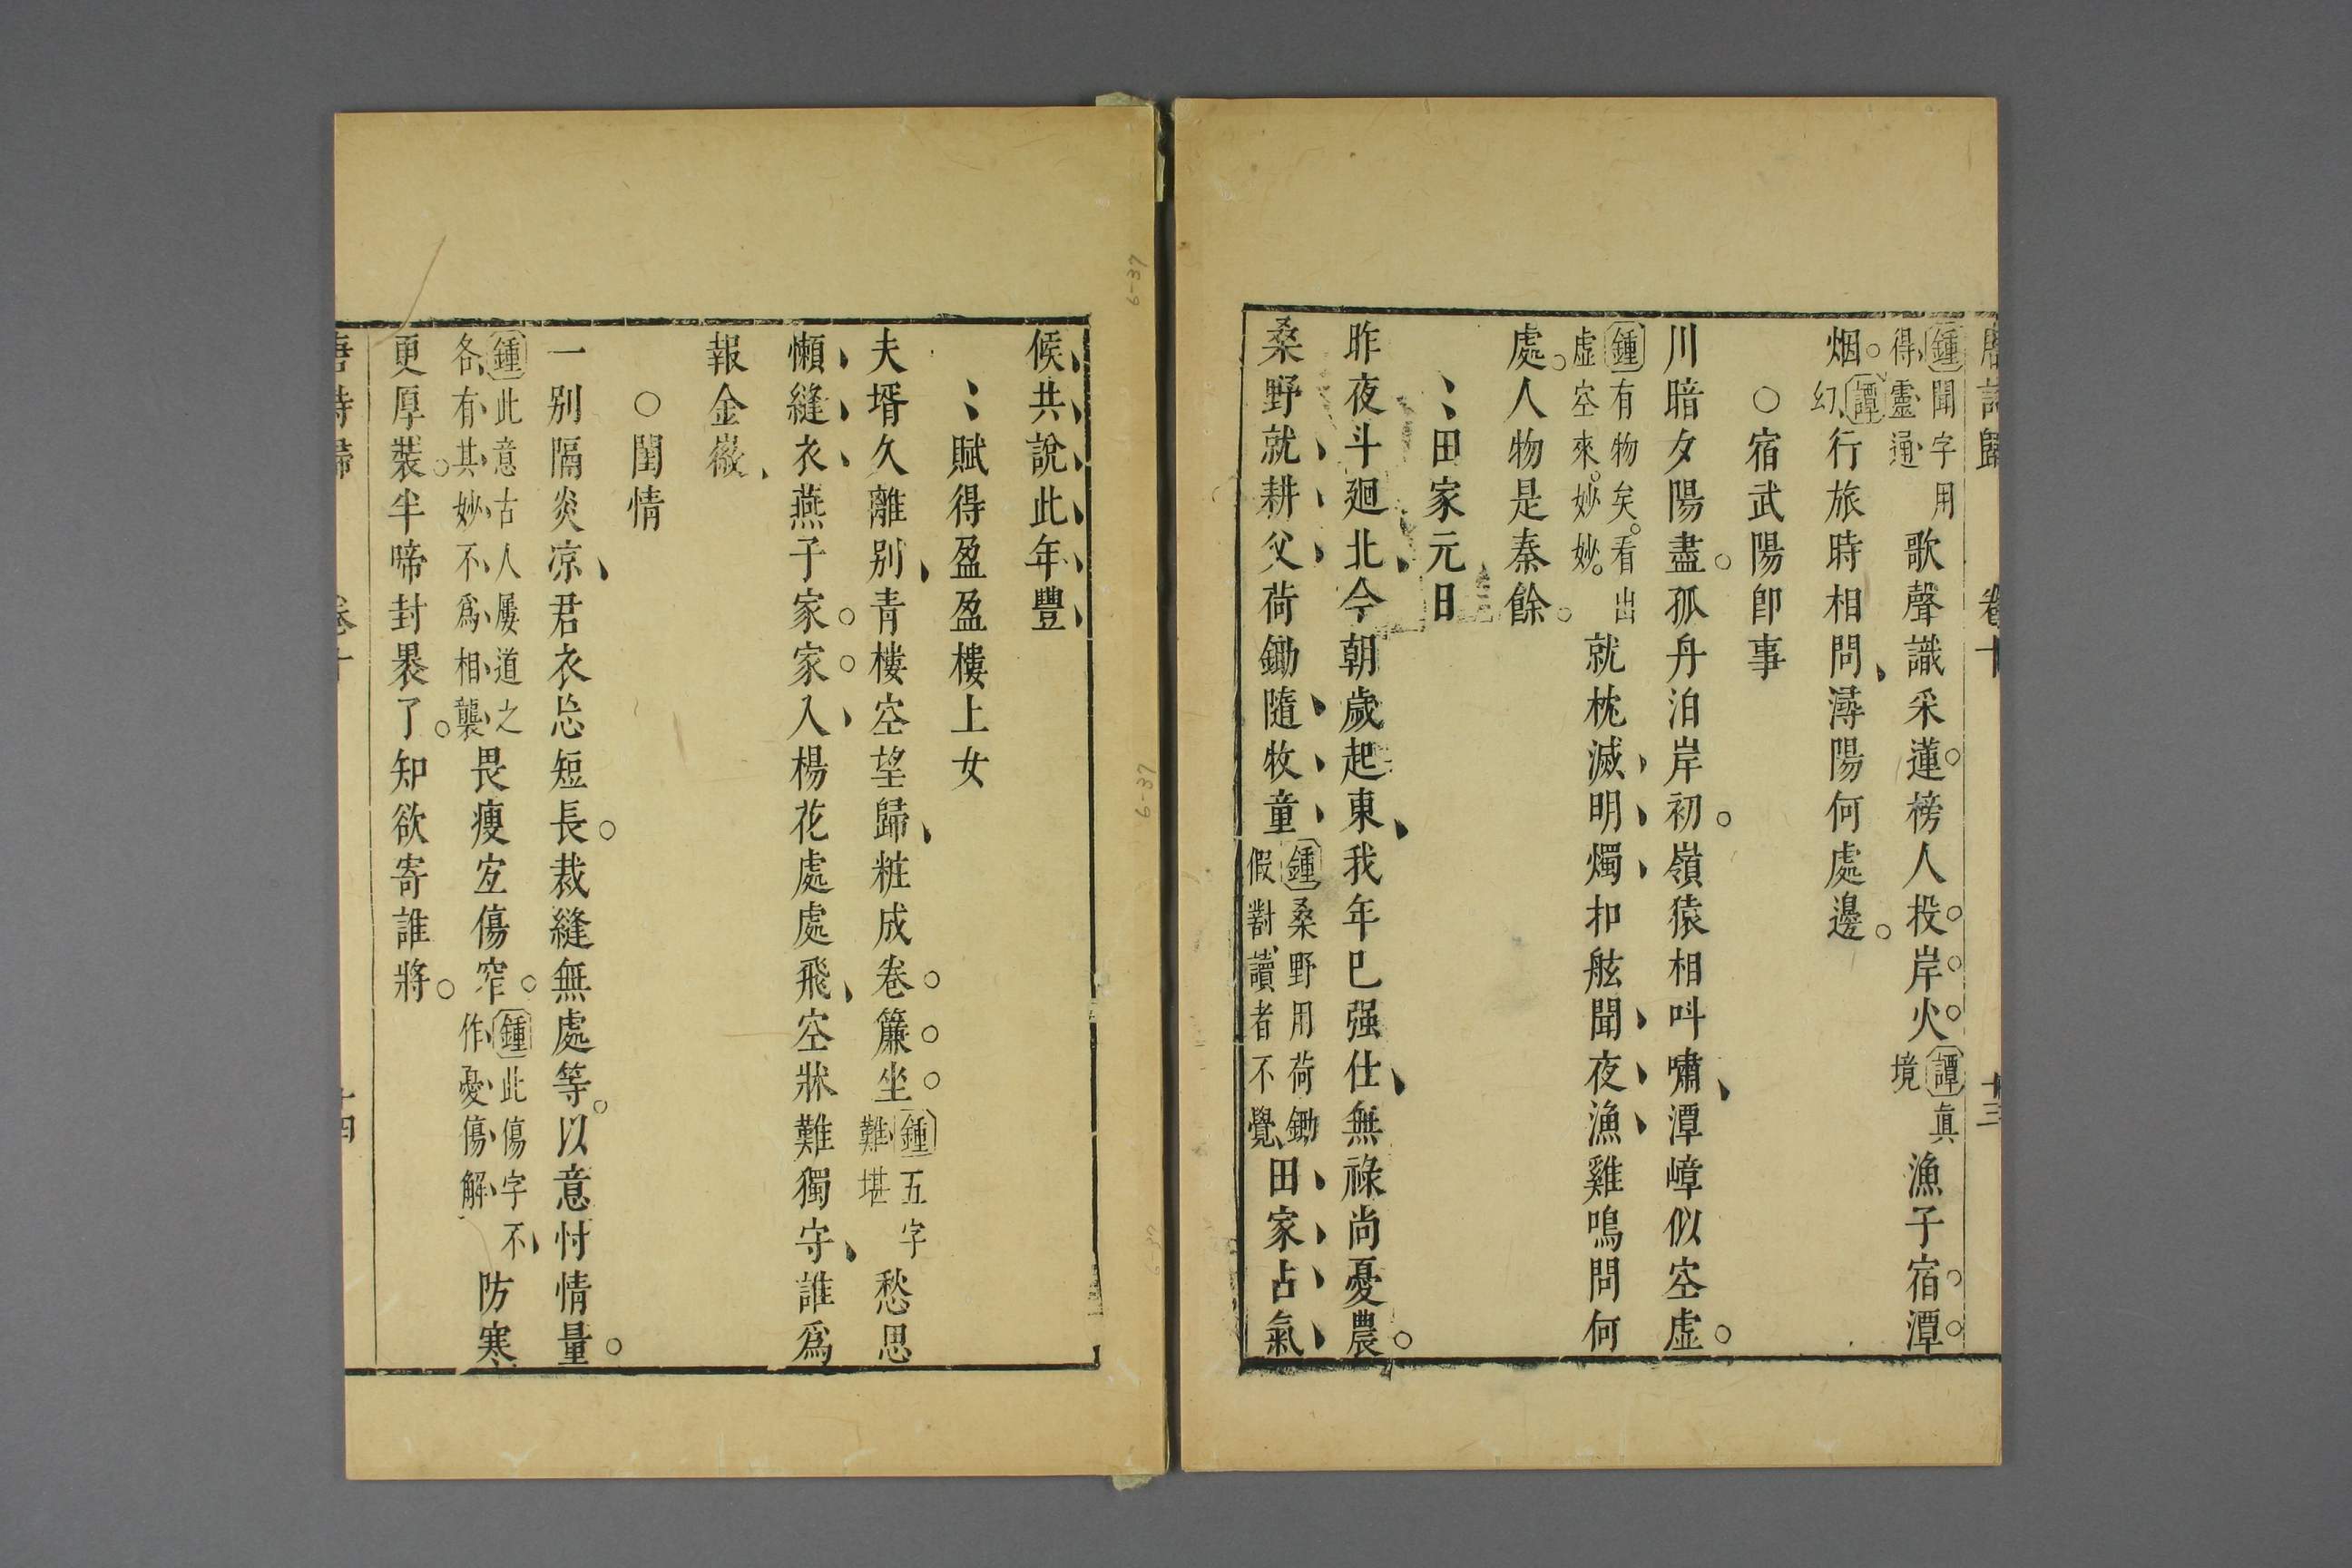 唐詩歸　卷十　十三
鍾聞字用得靈通歌聲識采蓮榜人投岸火譚真境漁子宿潭
烟譚幻行旅時相問潯陽何處邊
○宿武陽卽事
川暗夕陽盡孤舟泊岸初嶺猿相呌嘯潭嶂似空虛
鍾有物矣看出虛空來妙妙就枕滅明燭扣舷聞夜漁雞鳴問何
處人物是秦餘
田家元日
昨夜斗廻北今朝歲起東我年已强仕無祿尚憂農
桑野就耕父荷鋤隨牧童鍾桑野用荷鋤假對讀者不覺田家占氣
候共說此年豐
賦得盈盈樓上女
夫壻久離别青樓空望歸粧成卷簾坐鍾五字難堪愁思
懶縫衣燕子家家入楊花處處飛空牀難獨守誰爲
報金徽
○閨情
一别隔炎凉君衣忘短長裁縫無處等以意忖情量
鍾此意古人屢道之各有其妙不爲相襲畏瘦宐傷窄鍾此傷字不作憂傷解防寒
更厚裝半啼封裹了知欲寄誰將
唐詩歸　卷十　十四
6-37
6-37
6-37